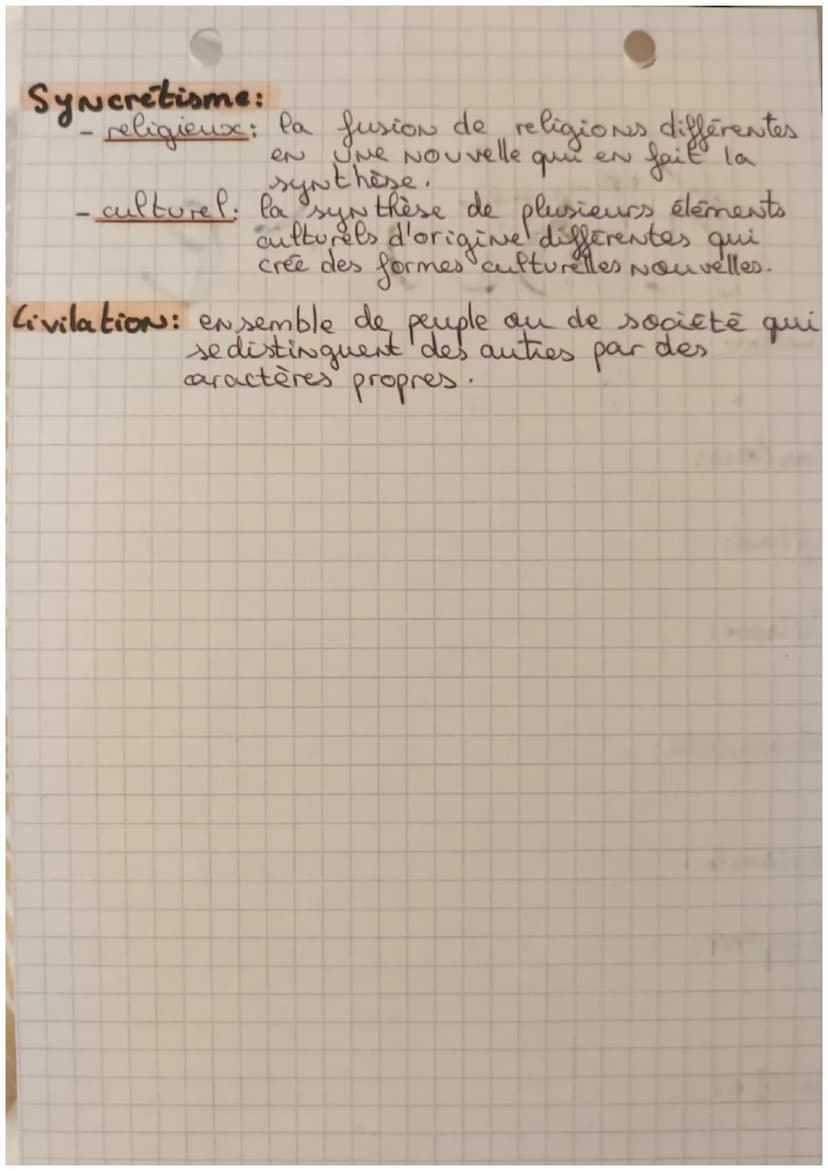 Syncrétisme:
- religieux: la fusion de religions différentes
en une nouvelle qui en fait la
synthèse.
- culturel: la synthèse de plusieurs éléments
culturels d'origine différentes qui
crée des formes culturelles nouvelles.
Civilation: ensemble de peuple ou de société qui
se distinguent des autres par des
caractères propres.